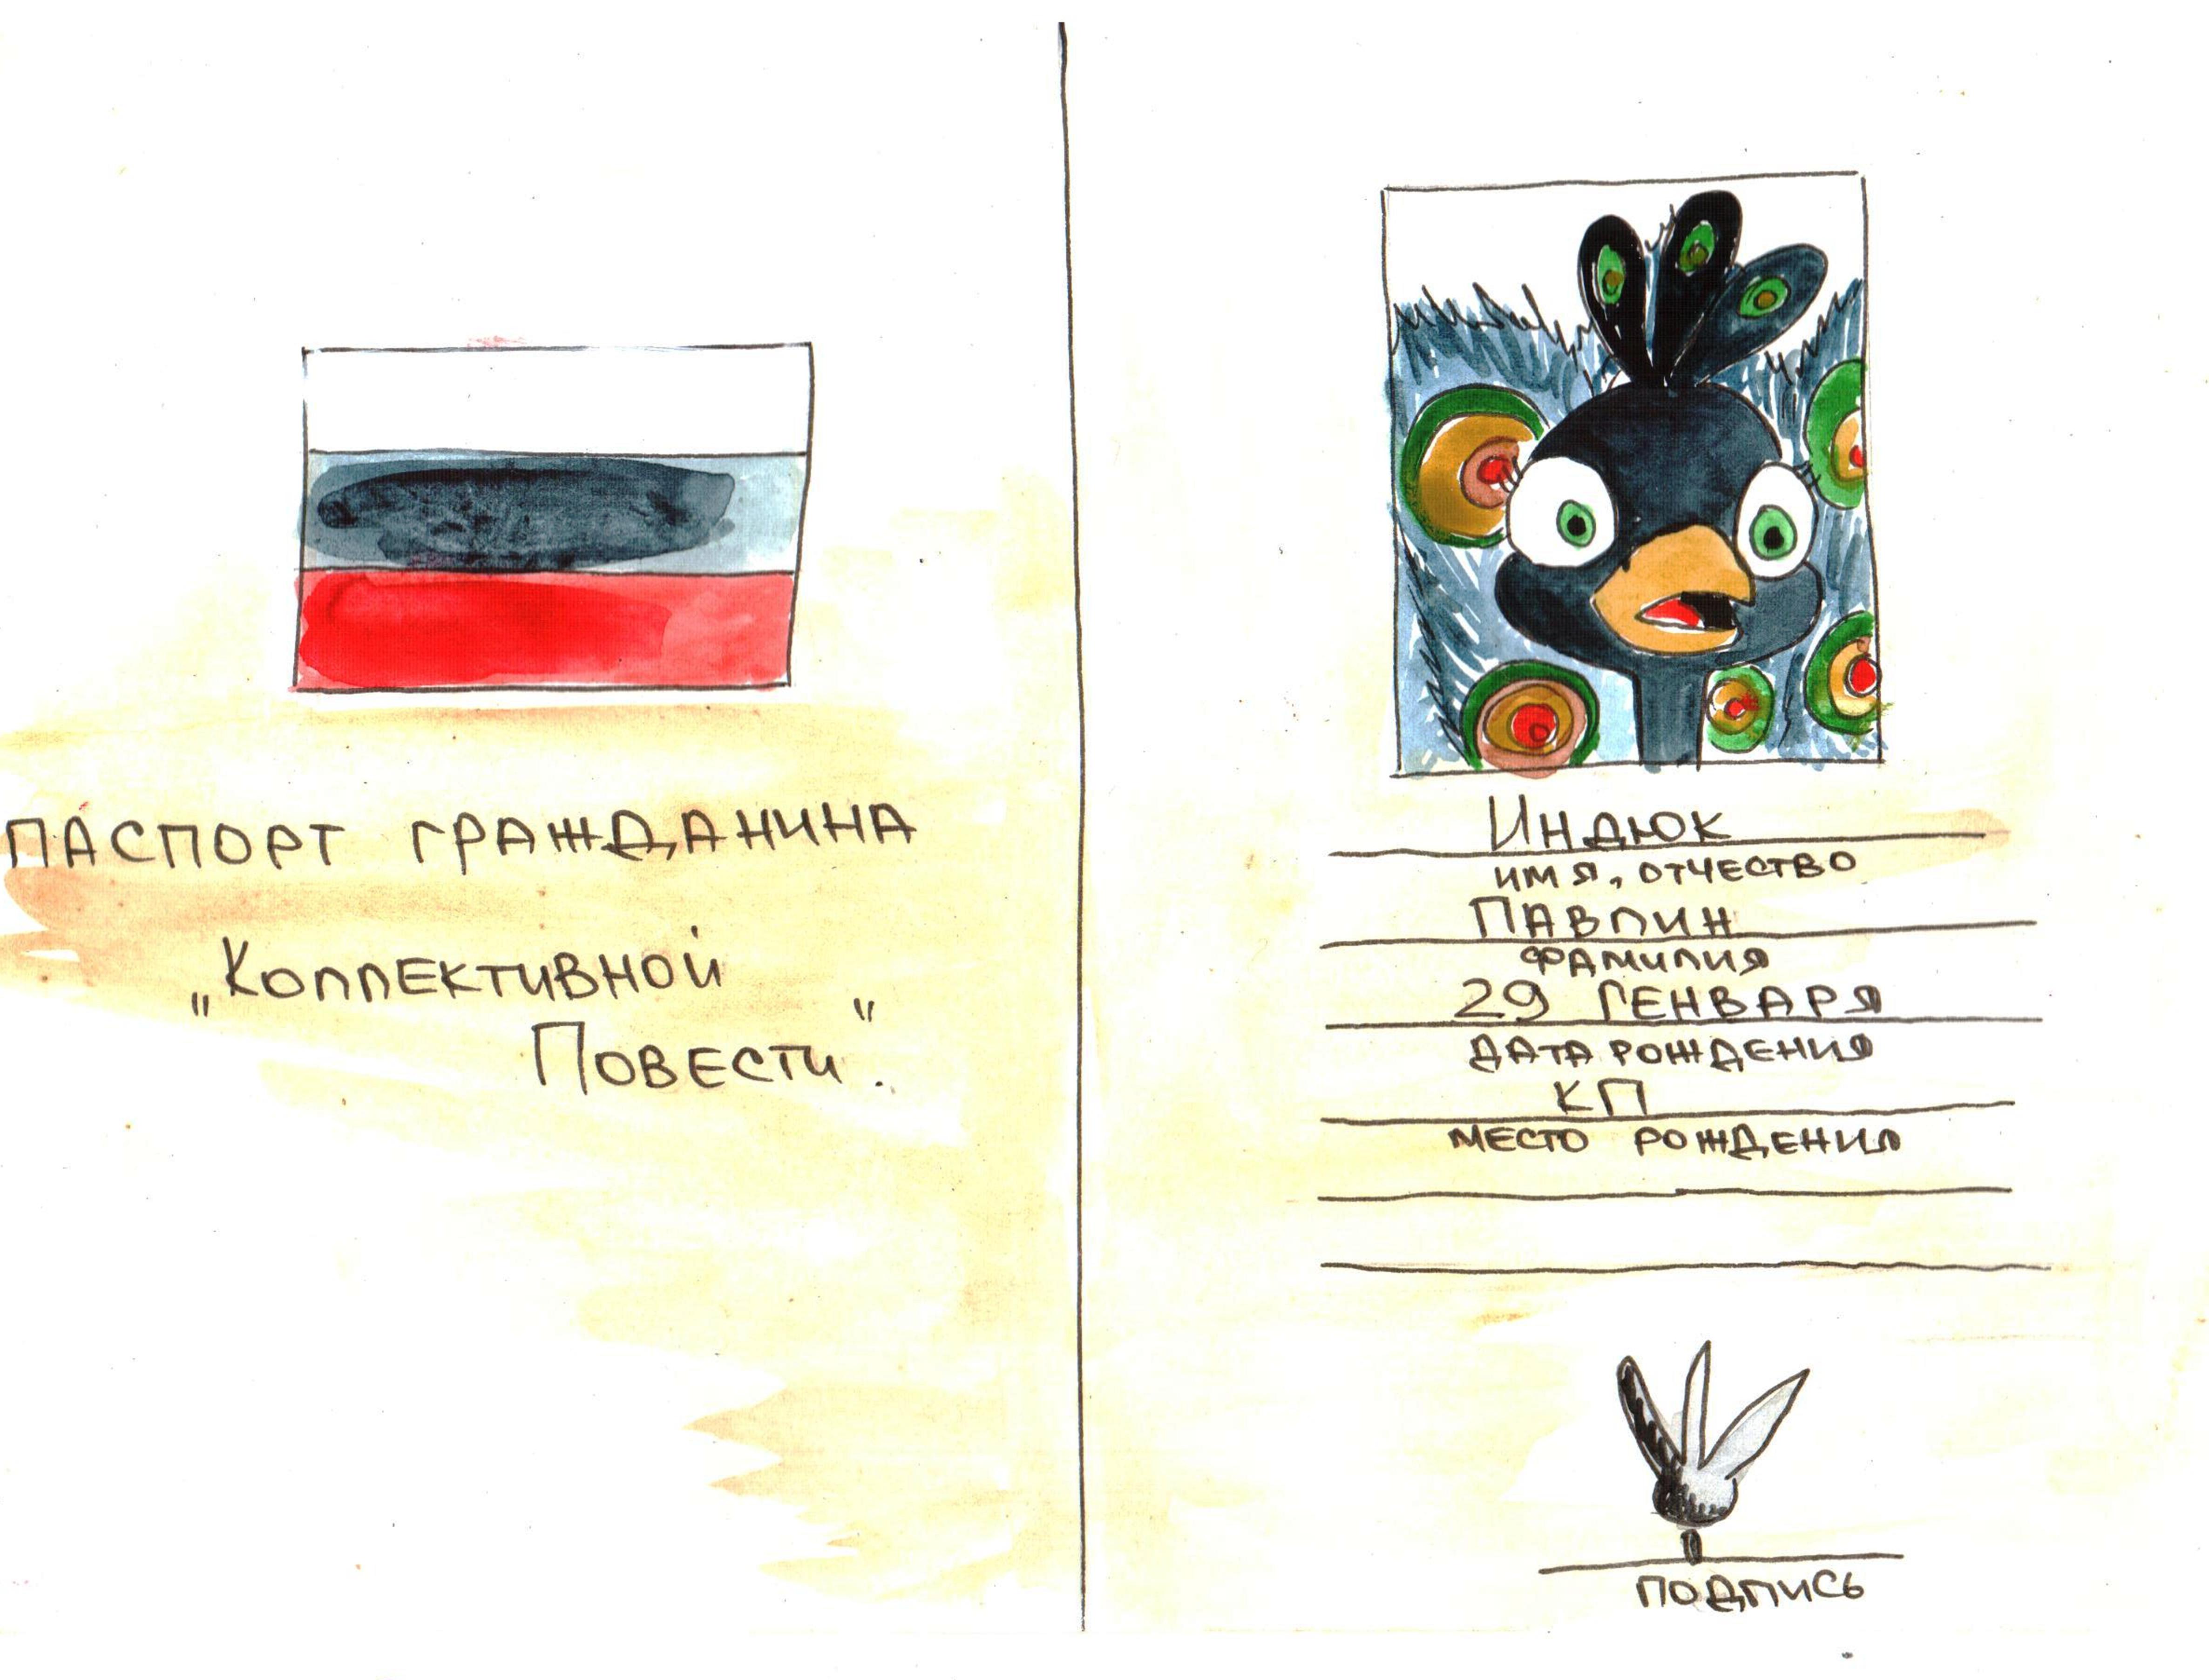 ПАСПОРТ ГРАЖДАНИНА
„Коллективной
Повести".
Индюк
имя, отчество
Павлин
фамилия
29 Генваря
дата рождения
КП
место рождения
подпись